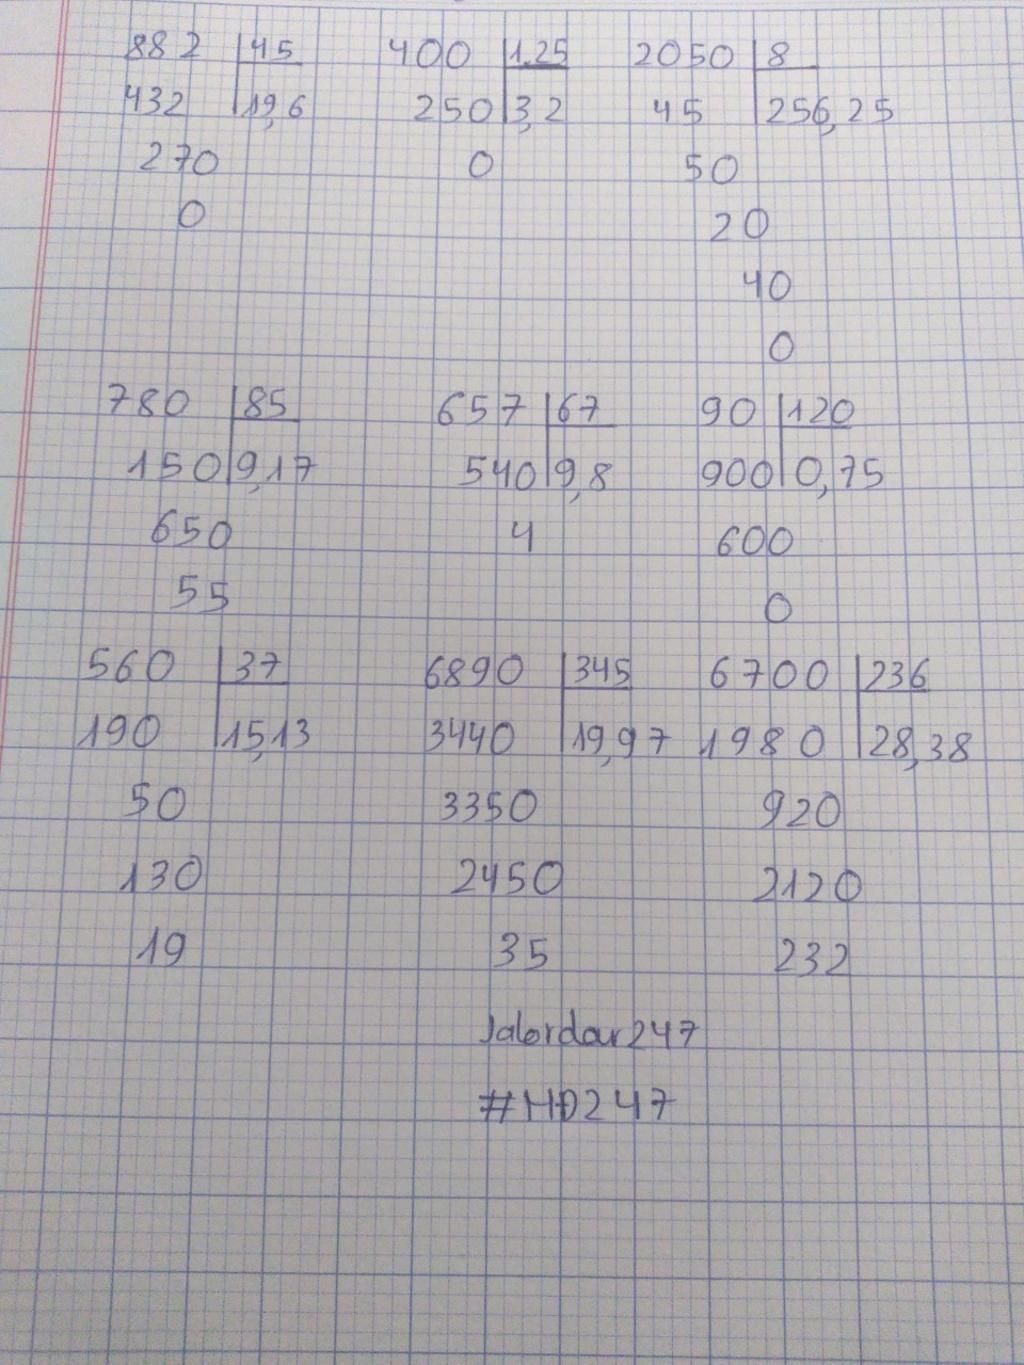 882 45 400 1,25 2050 8
432 19,6 250 3,2 45 256,25
270 0 50
0 20
40
0
780 85 657 67 90 120
150 9,17 540 9,8 900 0,75
650 4 600
55 0
560 37 6890 345 6700 236
190 15,13 3440 19,97 1980 28,38
50 3350 920
130 2450 2120
19 35 232
#HĐ247